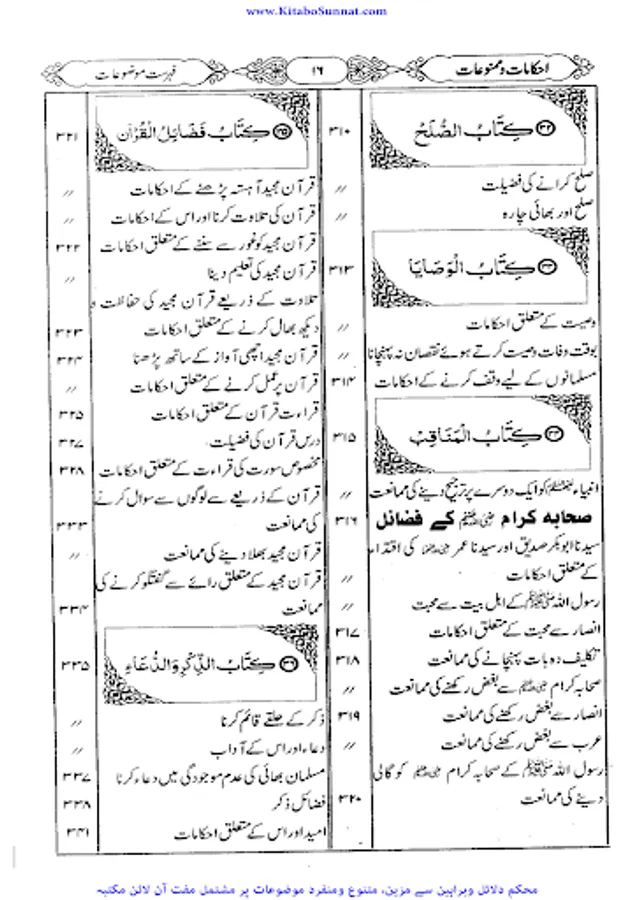 www.KitaboSunnat.com
احکامات و ممنوعات
۱۶
فہرست موضوعات
۳۲ کِتَابُ الصُّلْحُ ۳۱۰
صلح کرانے کی فضیلت //
صلح اور بھائی چارہ //
۳۳ کِتَابُ الْوَصَایَا ۳۱۳
وصیت کے متعلق احکامات //
بوقت وفات وصیت کرتے ہوئے نقصان نہ پہنچانا //
مسلمانوں کے لیے وقف کرنے کے احکامات ۳۱۴
۳۴ کِتَابُ الْمَنَاقِبْ ۳۱۵
انبیاء علیہم السلام کو ایک دوسرے پر ترجیح دینے کی ممانعت //
صحابہ کرام رضی اللہ عنہم کے فضائل ۳۱۶
سیدنا ابوبکر صدیق اور سیدنا عمر رضی اللہ عنہما کی اقتداء
کے متعلق احکامات //
رسول اللہ ﷺ کے اہل بیت سے محبت //
انصار سے محبت کے متعلق احکامات ۳۱۷
تکلیف دہ بات پہنچانے کی ممانعت ۳۱۸
صحابہ کرام رضی اللہ عنہم سے بغض رکھنے کی ممانعت //
انصار سے بغض رکھنے کی ممانعت ۳۱۹
عرب سے بغض رکھنے کی ممانعت //
رسول اللہ ﷺ کے صحابہ کرام رضی اللہ عنہم کو گالی
دینے کی ممانعت ۳۲۰
۳۵ کِتَابُ فَضَائِلِ الْقُرْاٰن ۳۲۱
قرآن مجید آہستہ پڑھنے کے احکامات //
قرآن کی تلاوت کرنا اور اس کے احکامات //
قرآن مجید کو غور سے سننے کے متعلق احکامات ۳۲۲
قرآن مجید کی تعلیم دینا //
تلاوت کے ذریعے قرآن مجید کی حفاظت و
دیکھ بھال کرنے کے متعلق احکامات ۳۲۳
قرآن مجید اچھی آواز کے ساتھ پڑھنا ۳۲۴
قرآن پر عمل کرنے کے متعلق احکامات //
قراءت قرآن کے متعلق احکامات ۳۲۵
درس قرآن کی فضیلت ۳۲۷
مخصوص سورت کی قراءت کے متعلق احکامات ۳۲۸
قرآن کے ذریعے سے لوگوں سے سوال کرنے
کی ممانعت ۳۳۳
قرآن مجید بھلا دینے کی ممانعت //
قرآن مجید کے متعلق رائے سے گفتگو کرنے کی
ممانعت ۳۳۴
۳۶ کِتَابُ الذِّکْرِ وَالدُّعَاءِ ۳۳۵
ذکر کے حلقے قائم کرنا //
دعاء اور اس کے آداب //
مسلمان بھائی کی عدم موجودگی میں دعاء کرنا ۳۳۷
فضائل ذکر ۳۳۸
امید اور اس کے متعلق احکامات ۳۴۱
محکم دلائل وبراہین سے مزین، متنوع ومنفرد موضوعات پر مشتمل مفت آن لائن مکتبہ